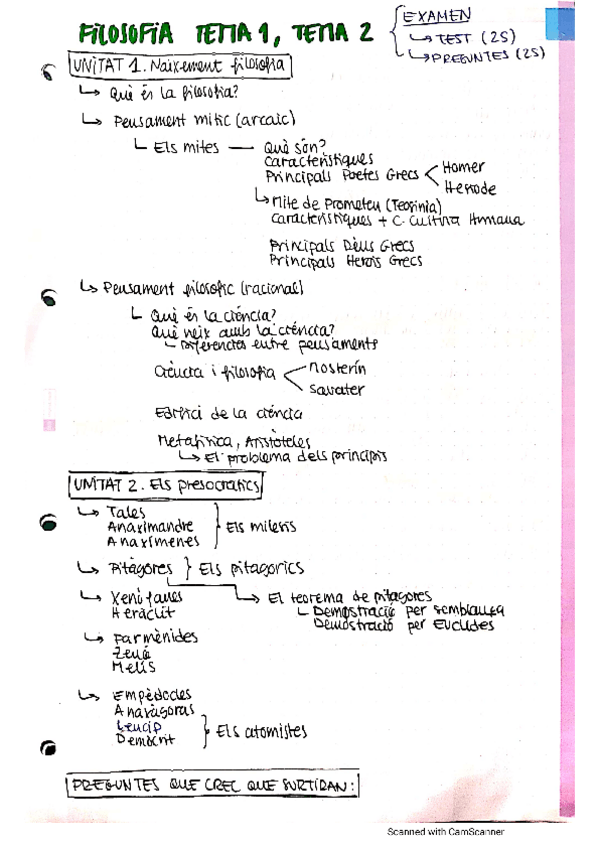 FILOSOFIA TEMA 1, TEMA 2
EXAMEN
↳ TEST (25)
↳ PREGUNTES (25)
UNITAT 1. Naixement filosofia
↳ Què és la filosofia?
↳ Pensament mític (arcaic)
Els mites — Què són?
Característiques
Principals Poetes Grecs < Homer
Hesíode
↳ Mite de Prometeu (Teogonia)
Característiques + C. Cultura Humana
Principals Déus Grecs
Principals Herois Grecs
↳ Pensament filosòfic (racional)
Què és la ciència?
Què neix amb la ciència?
Diferències entre pensaments
Ciència i filosofia < Mosterín
Savater
Edifici de la ciència
Metafísica, Aristòteles
↳ El problema dels principis
UNITAT 2. Els presocràtics
↳ Tales
Anaximandre } Els milesis
Anaxímenes
↳ Pitàgores } Els pitagòrics
↳ El teorema de pitàgores
Demostració per semblança
Demostració per Euclides
↳ Xenòfanes
Heràclit
↳ Parmènides
Zenó
Melís
↳ Empèdocles
Anaxàgoras
Leucip
Demòcrit } Els atomistes
PREGUNTES QUE CREC QUE SURTIRAN:
Scanned with CamScanner